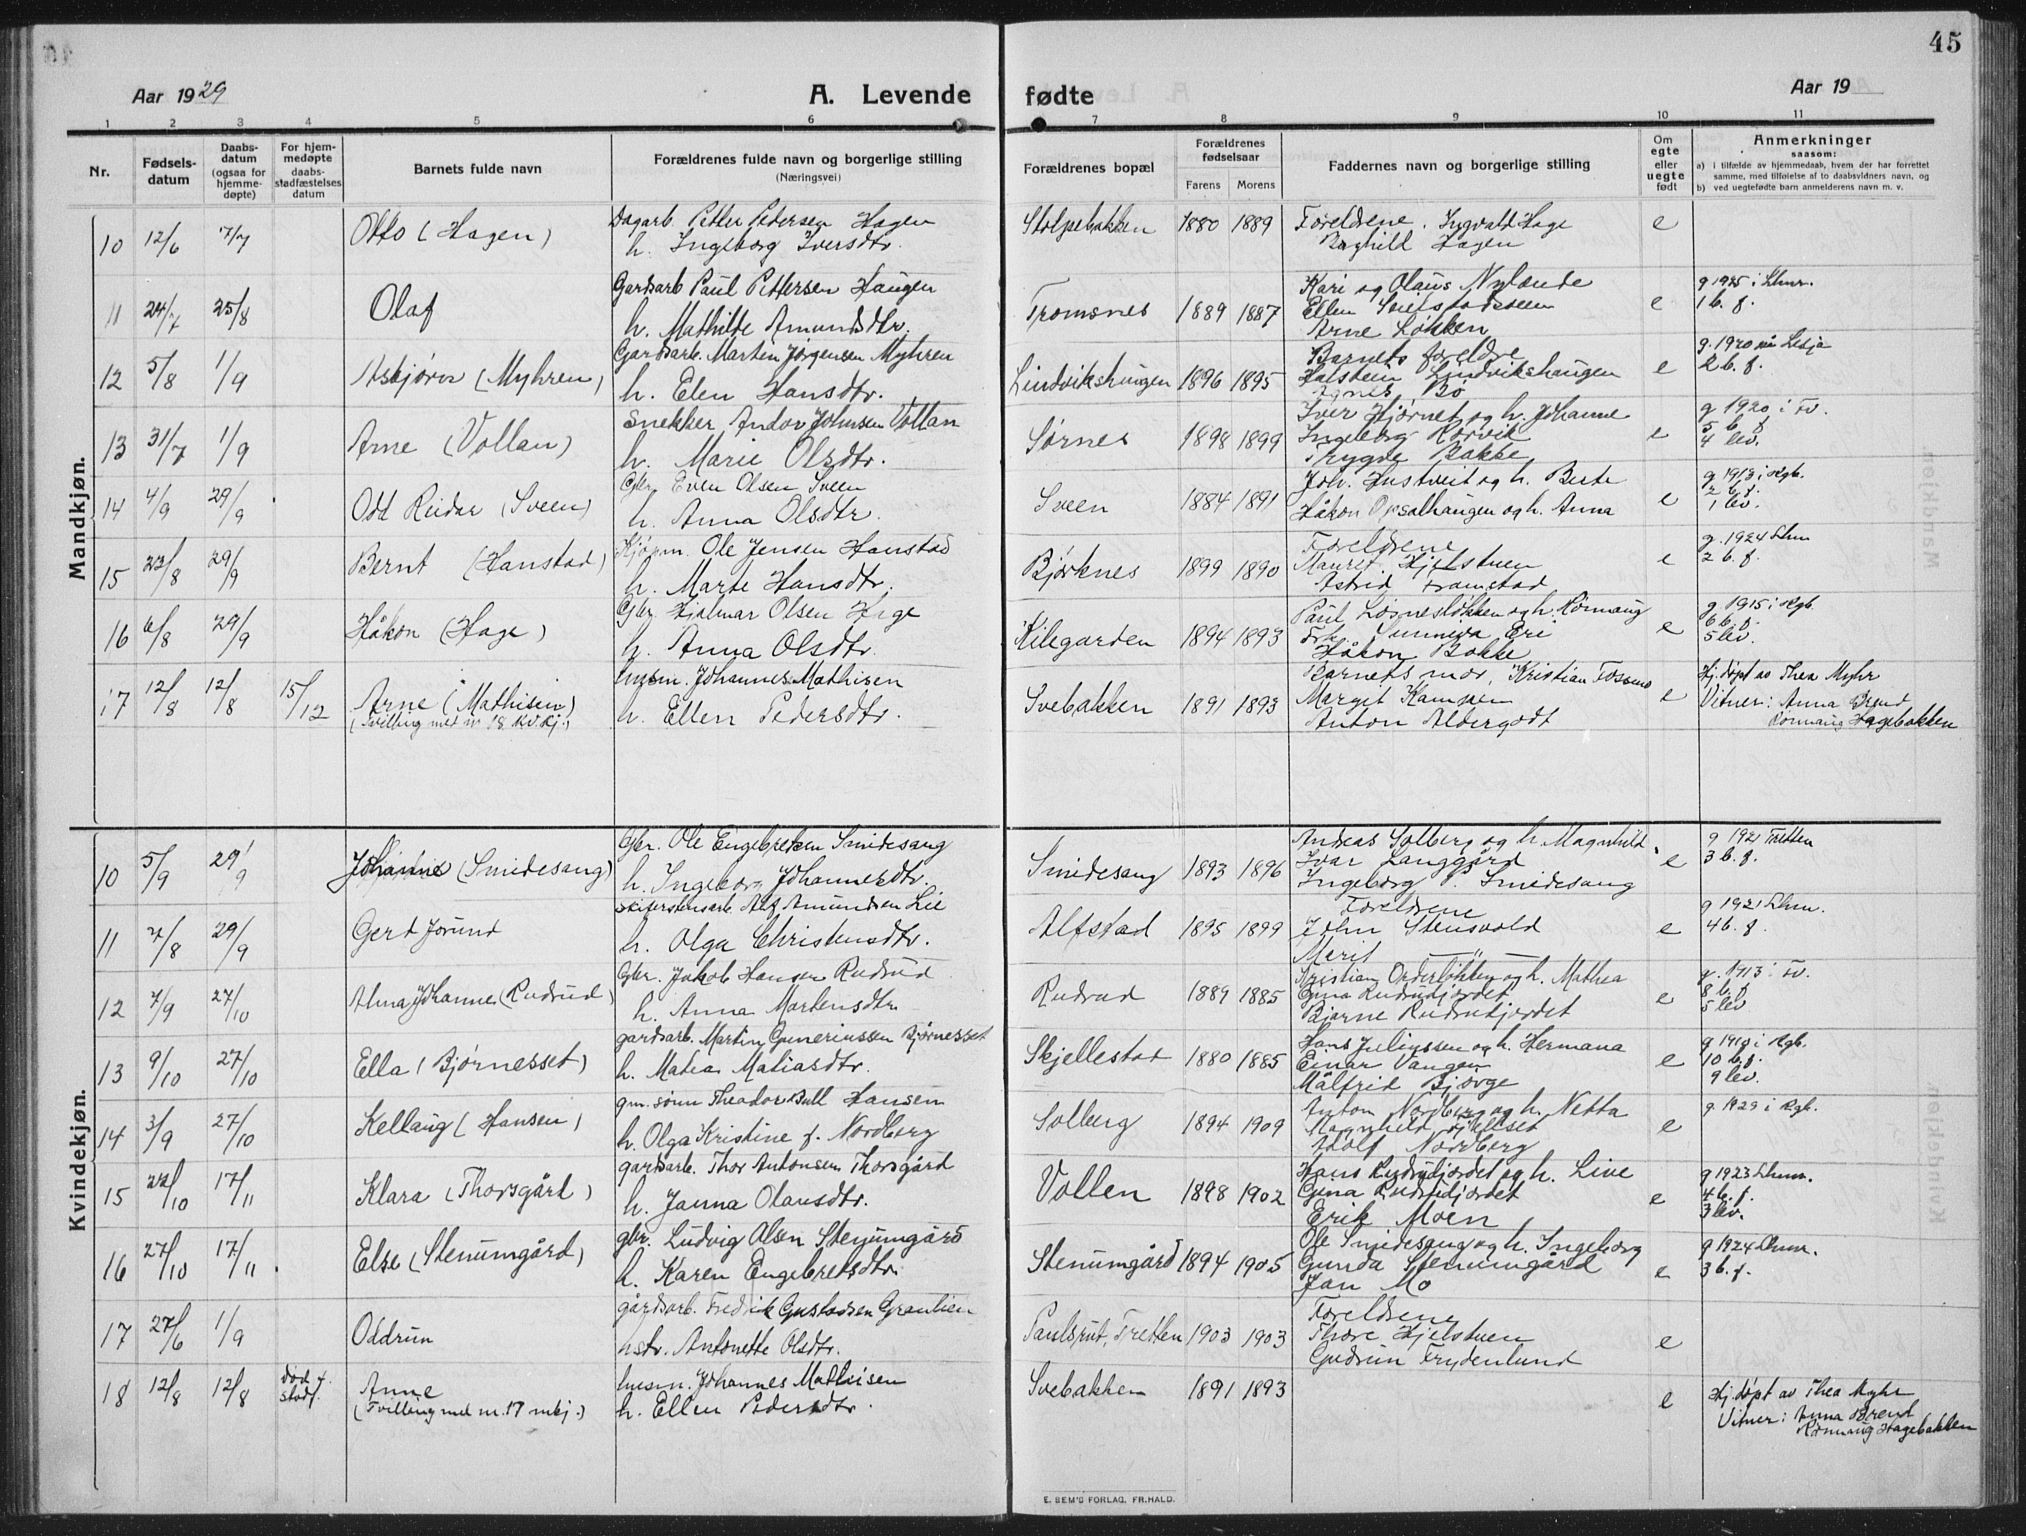 45
Aar 1929
A. Levende fødte
Aar 19
1 2 3 4 5 6 7 8 9 10 11
Nr.
Fødsels-datum
Daabs-datum (ogsaa for hjemme-døpte)
For hjem-medøpte daabs-stadfæstelses datum
Barnets fulde navn
Forældrenes fulde navn og borgerlige stilling
(Næringsvei)
Forældrenes bopæl
Forældrenes fødselsaar
Farens Morens
Faddernes navn og borgerlige stilling
Om egte eller uegte født
Anmerkninger
saasom:
a) i tilfælde av hjemmedaab, hvem der har forrettet samme, med tilføielse af to daabsvidners navn, og
b) ved uegtefødte barn anmelderens navn m. v.
Mandkjøn.
10 12/6 7/7 Otto (Hagen)
Dagarb. Petter Pedersen Hagen
h. Ingeborg Iversdtr.
Stolpebakken 1880 1889
Foreldrene. Ingvald Hage
Borghild Hagen
e
11 24/7 25/8 Olaf
Gardsarb Paul Pettersen Haugen
h. Mathilde Amundsdtr.
Tromsnes 1889 1887
Kari og Olaus Nylænde
Ellen
Arne Løkken
e
g 1925 i Lhmr.
1 b. f.
12 5/8 1/9 Asbjørn (Myhren)
Gardsarb. Marten Jørgensen Myhren
h. Elen Hansdtr.
Lindvikshaugen 1896 1895
Barnets foreldre
Halstein Lindvikshaugen
Agnes Bø
e
g. 1920 på Lesja
2 b. f.
13 31/7 1/9 Arne (Vollan)
Snekker Andor Johnsen Vollan
h. Marie Olsdtr.
Sørnes 1898 1899
Iver Hjørnet og h. Johanne
Ingeborg Rørvik
Trygde Bakke
e
g 1920 i Fv.
5 b. f.
4 lev.
14 4/9 29/9 Odd Reidar (Sveen)
Gbr. Even Olsen Sveen
h. Anna Olsdtr.
Sveen 1884 1891
Joh. Hustveit og h. Berte
Håkon Opsalhaugen og h. Anna
e
g 1913 i Rgb.
2 b. f.
1 lev.
15 22/8 29/9 Bernt (Hanstad)
Kjøpm. Ole Jensen Hanstad
h. Marte Hansdtr.
Bjørknes 1899 1890
Foreldrene
Hjelstuen
Astrid Framstad
e
g. 1924 Lhm
2 b. f.
16 6/8 29/9 Håkon (Hage)
Gbr Hjalmar Olsen Hage
h. Anna Olsdtr.
Kilegarden 1894 1893
Paul Løsnesløkken og h. Rønnaug
Frk. Sunneva Eri
Håkon Bakke
e
g. 1915 i Rgb.
6 b. f.
5 lev.
17 12/8 12/8 15/12 Arne (Mathisen)
(Tvilling med nr 18 kv.kj.)
husm. Johannes Mathisen
h. Ellen Pedersdtr.
Svebakken 1891 1893
Barnets mor, Kristian Fossmo
Margit Kampen
Anton Aldergodt
e
Hj.døpt av Thea Myhr
Vitner: Anna Brend
Rønnaug Hagebakken
Kvindekjøn.
10 5/9 29/9 Johanne (Smidesang)
Gbr. Ole Engebretsen Smidesang
h. Ingeborg Johannesdtr.
Smidesang 1893 1896
Andreas Solberg og h. Magnhild
Ivar Langgård
Ingeborg P. Smidesang
e
g 1921 Tretten
3 b. f.
11 7/8 29/9 Gerd Jorund
Skiferstensarb. Alf Amundsen Lie
h. Olga Christensdtr.
Alfstad 1895 1899
Foreldrene
John Stensvold
Marit — " —
e
g 1921 Lhm.
4 b. f.
12 7/9 27/10 Alma Johanne (Rudrud)
Gbr. Jakob Hansen Rudrud
h. Anna Martensdtr.
Rudrud 1889 1885
Kristian Onderløkken og h. Mathea
Gina Rudrudjordet
Bjarne Rudrudjordet
e
g. 1913 i Fv.
8 b. f
5 lev
13 9/10 27/10 Ella (Bjørnesset)
gardsarb. Martin Guneriussen Bjørnesset
h. Matea Matiasdtr.
Skjellestad 1880 1885
Hans Juliussen og h. Hermana
Einar Vangen
Målfrid Bjørge
e
g 1910 i Rgb.
10 b. f.
9 lev.
14 3/9 27/10 Kellaug (Hansen)
gm. sønn Theodor Bull Hansen
h. Olga Kristine f. Nordberg
Solberg 1894 1909
Anton Nordberg og h. Netta
Magnhild
Adolf Nordberg
e
g. 1929 i Rgb.
15 22/10 17/11 Klara (Thorsgård)
gardsarb. Thor Antonsen Thorsgård
h. Janna Olausdtr.
Vollen 1898 1902
Hans Rudrudjordet og h. Live
Gina Rudrudjordet
Erik Moen
e
g 1923 Lhmr.
4 b. f.
3 lev.
16 27/10 17/11 Else (Stenumgård)
gbr. Ludvig Olsen Stenumgård
h. Karen Engebretsdtr.
Stenumgård 1894 1905
Ole Smidesang og h. Ingeborg
Gunda Stenumgård
Jan Mo
e
g 1924 Lhmr.
3 b. f.
17 27/6 1/9 Oddrun
gårdsarb. Fredrik Gustavsen Granlien
hstr. Antonette Olsdtr.
Paulsrud, Tretten 1903 1903
Foreldrene
Thore Hjelstuen
Gudrun Frydenlund
e
18 12/8 12/8 død f. stadf. Anne
(Tvilling med nr. 17 mkj.)
husm. Johannes Mathisen
h. Ellen Pedersdtr.
Svebakken 1891 1893
e
Hj.døpt av Thea Myhr
Vitner: Anna Brend
Rønnaug Hagebakken
E. SEM'S FORLAG, FR.HALD.